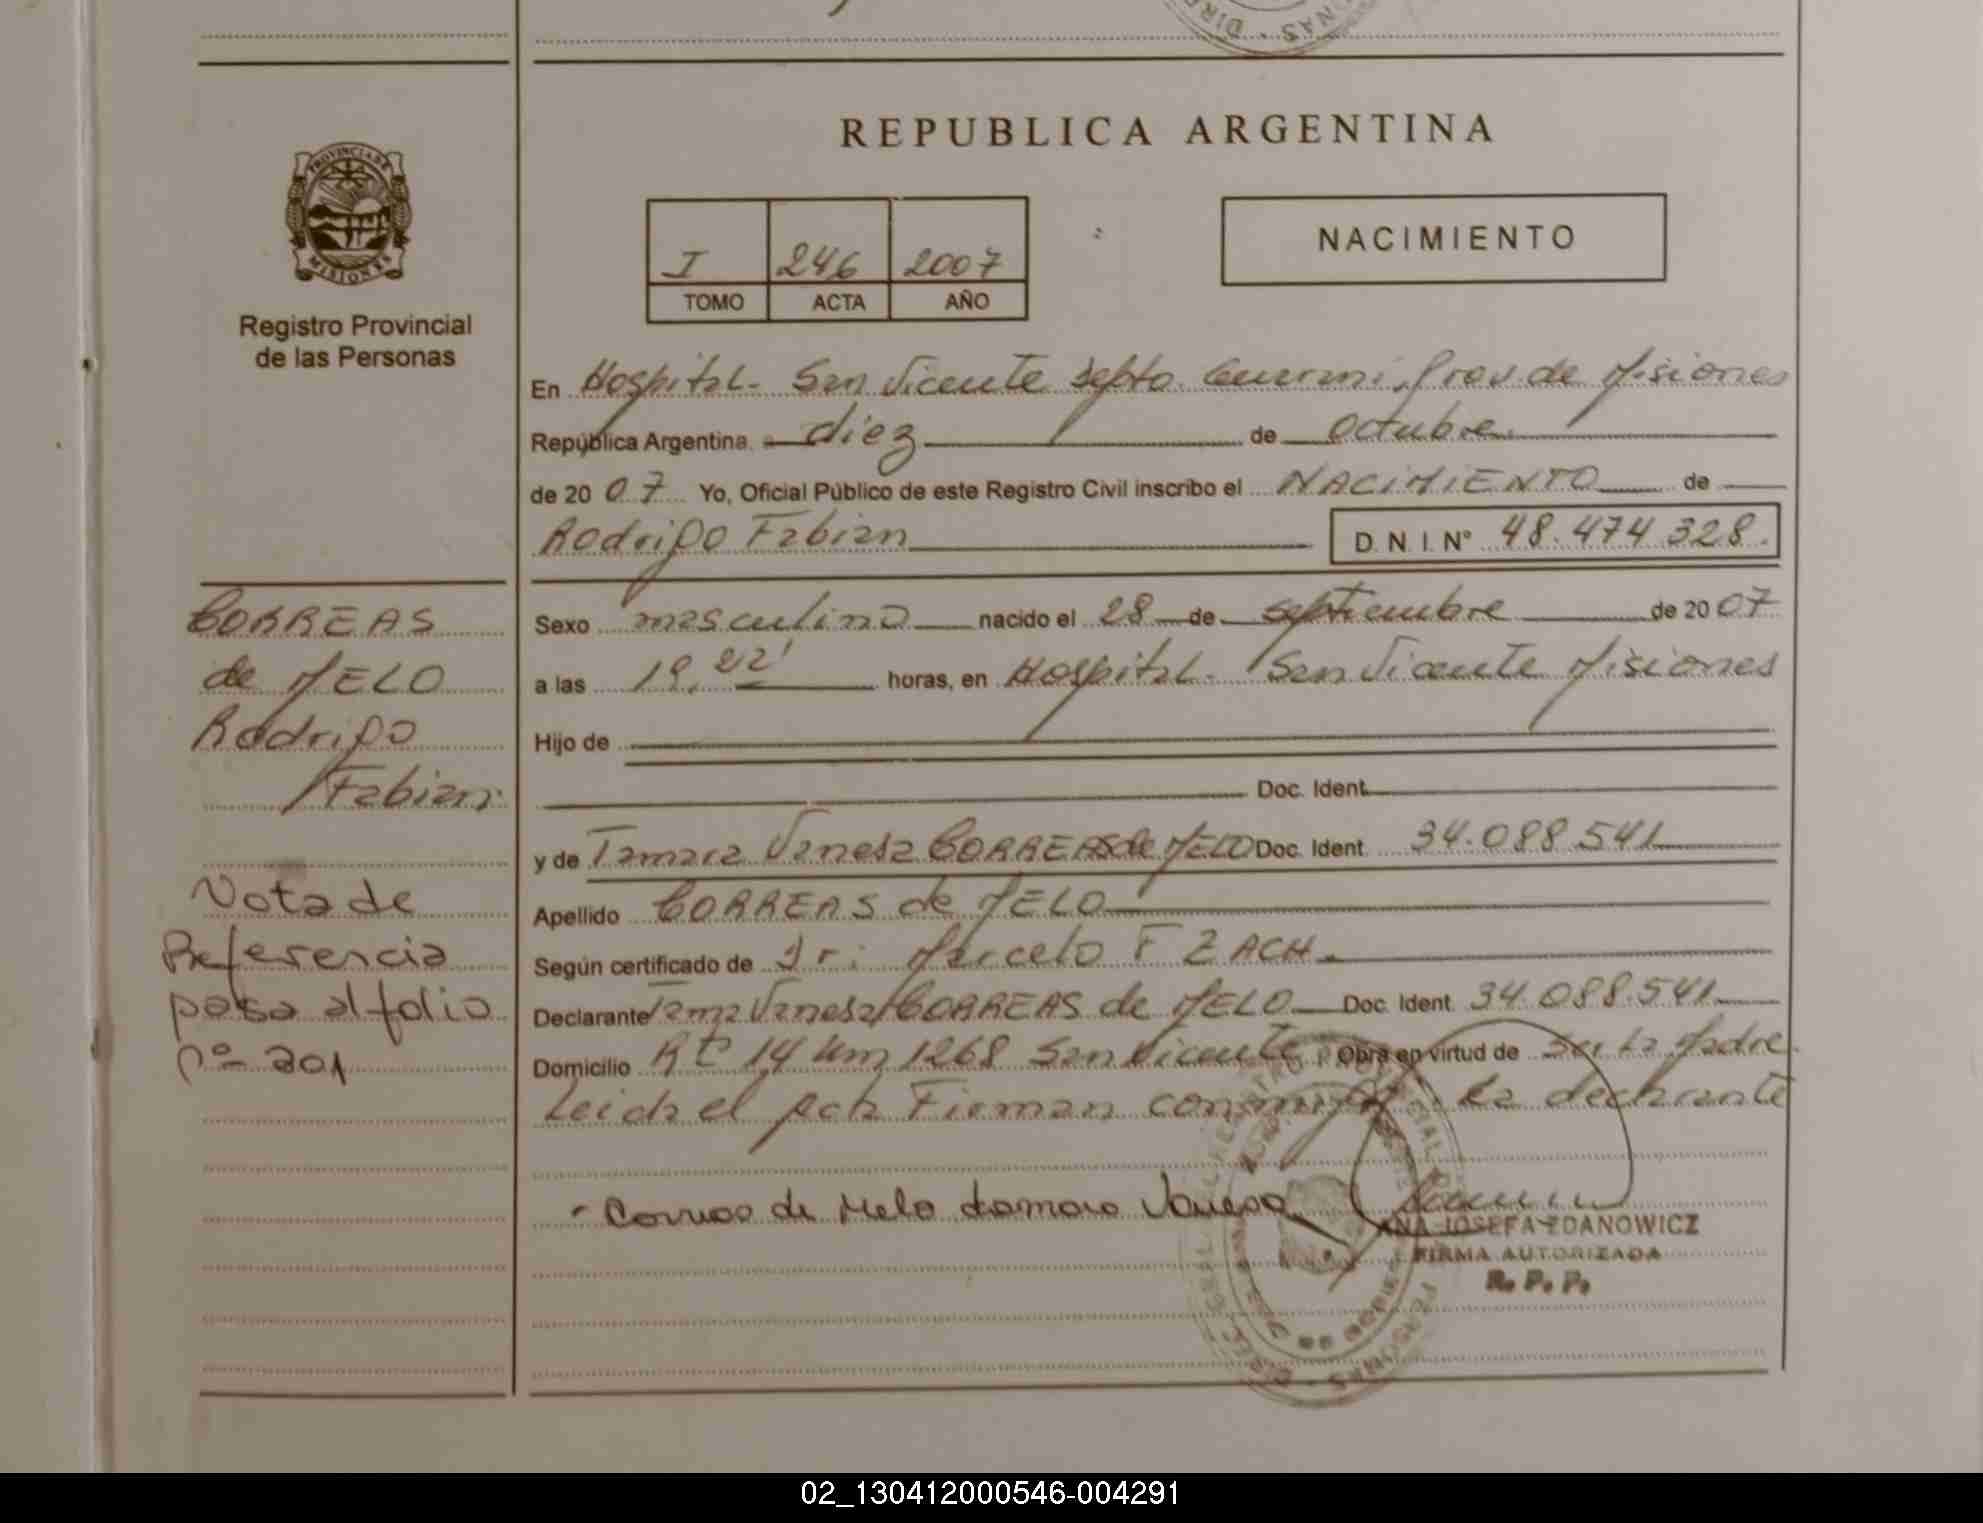 REPUBLICA ARGENTINA
PROVINCIA DE
MISIONES
Registro Provincial
de las Personas
I 246 2007
TOMO ACTA AÑO
NACIMIENTO
En Hospital - San Vicente Depto. Guarani, Prov. de Misiones
República Argentina, a diez de Octubre
de 2007 Yo, Oficial Público de este Registro Civil inscribo el NACIMIENTO de
Rodrigo Fabian D. N. I. N° 48.474 328.
CORREAS
de MELO
Rodrigo
Fabian
Sexo masculino nacido el 28 de septiembre de 2007
a las 19.22' horas, en Hospital - San Vicente Misiones
Hijo de
Doc. Ident.
y de Tamara Vanesa CORREAS de MELO Doc. Ident. 34.088.541
Nota de
Referencia
pasa al folio
nº 201
Apellido CORREAS de MELO
Según certificado de Dr: Marcelo F ZACH.
Declarante Tama Vanesa CORREAS de MELO Doc. Ident. 34.088.541
Domicilio Rt 14 Km 1268 San Vicente Obra en virtud de ser la Madre.
Leida el acta Firman conmigo la declarante
- Correas de Melo tamara Vanesa
ANA JOSEFA ZDANOWICZ
FIRMA AUTORIZADA
R. P. P.
02_130412000546-004291